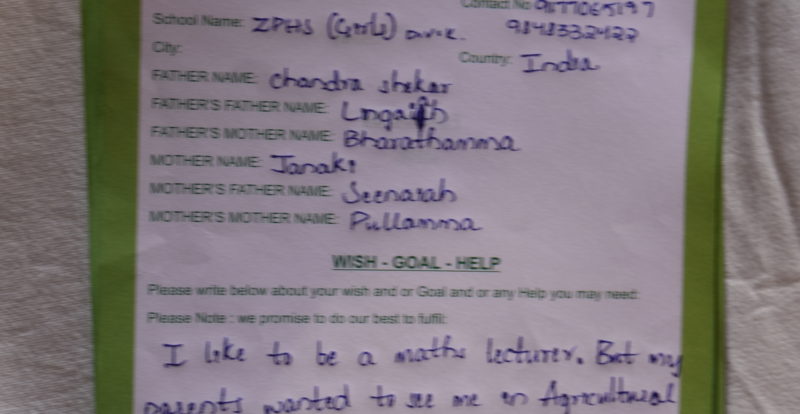 Contact No
School Name: ZPHS (Girls)
9848332422
City:
Country: India
FATHER NAME: chandra shekar
FATHER'S FATHER NAME:
FATHER'S MOTHER NAME: Bharathamma
MOTHER NAME: Janaki
MOTHER'S FATHER NAME: Seenaiah
MOTHER'S MOTHER NAME: Pullamma
WISH - GOAL - HELP
Please write below about your wish and or Goal and or any Help you may need:
Please Note : we promise to do our best to fulfil:
I like to be a maths lecturer. But my
parents wanted to see me in Agricultural